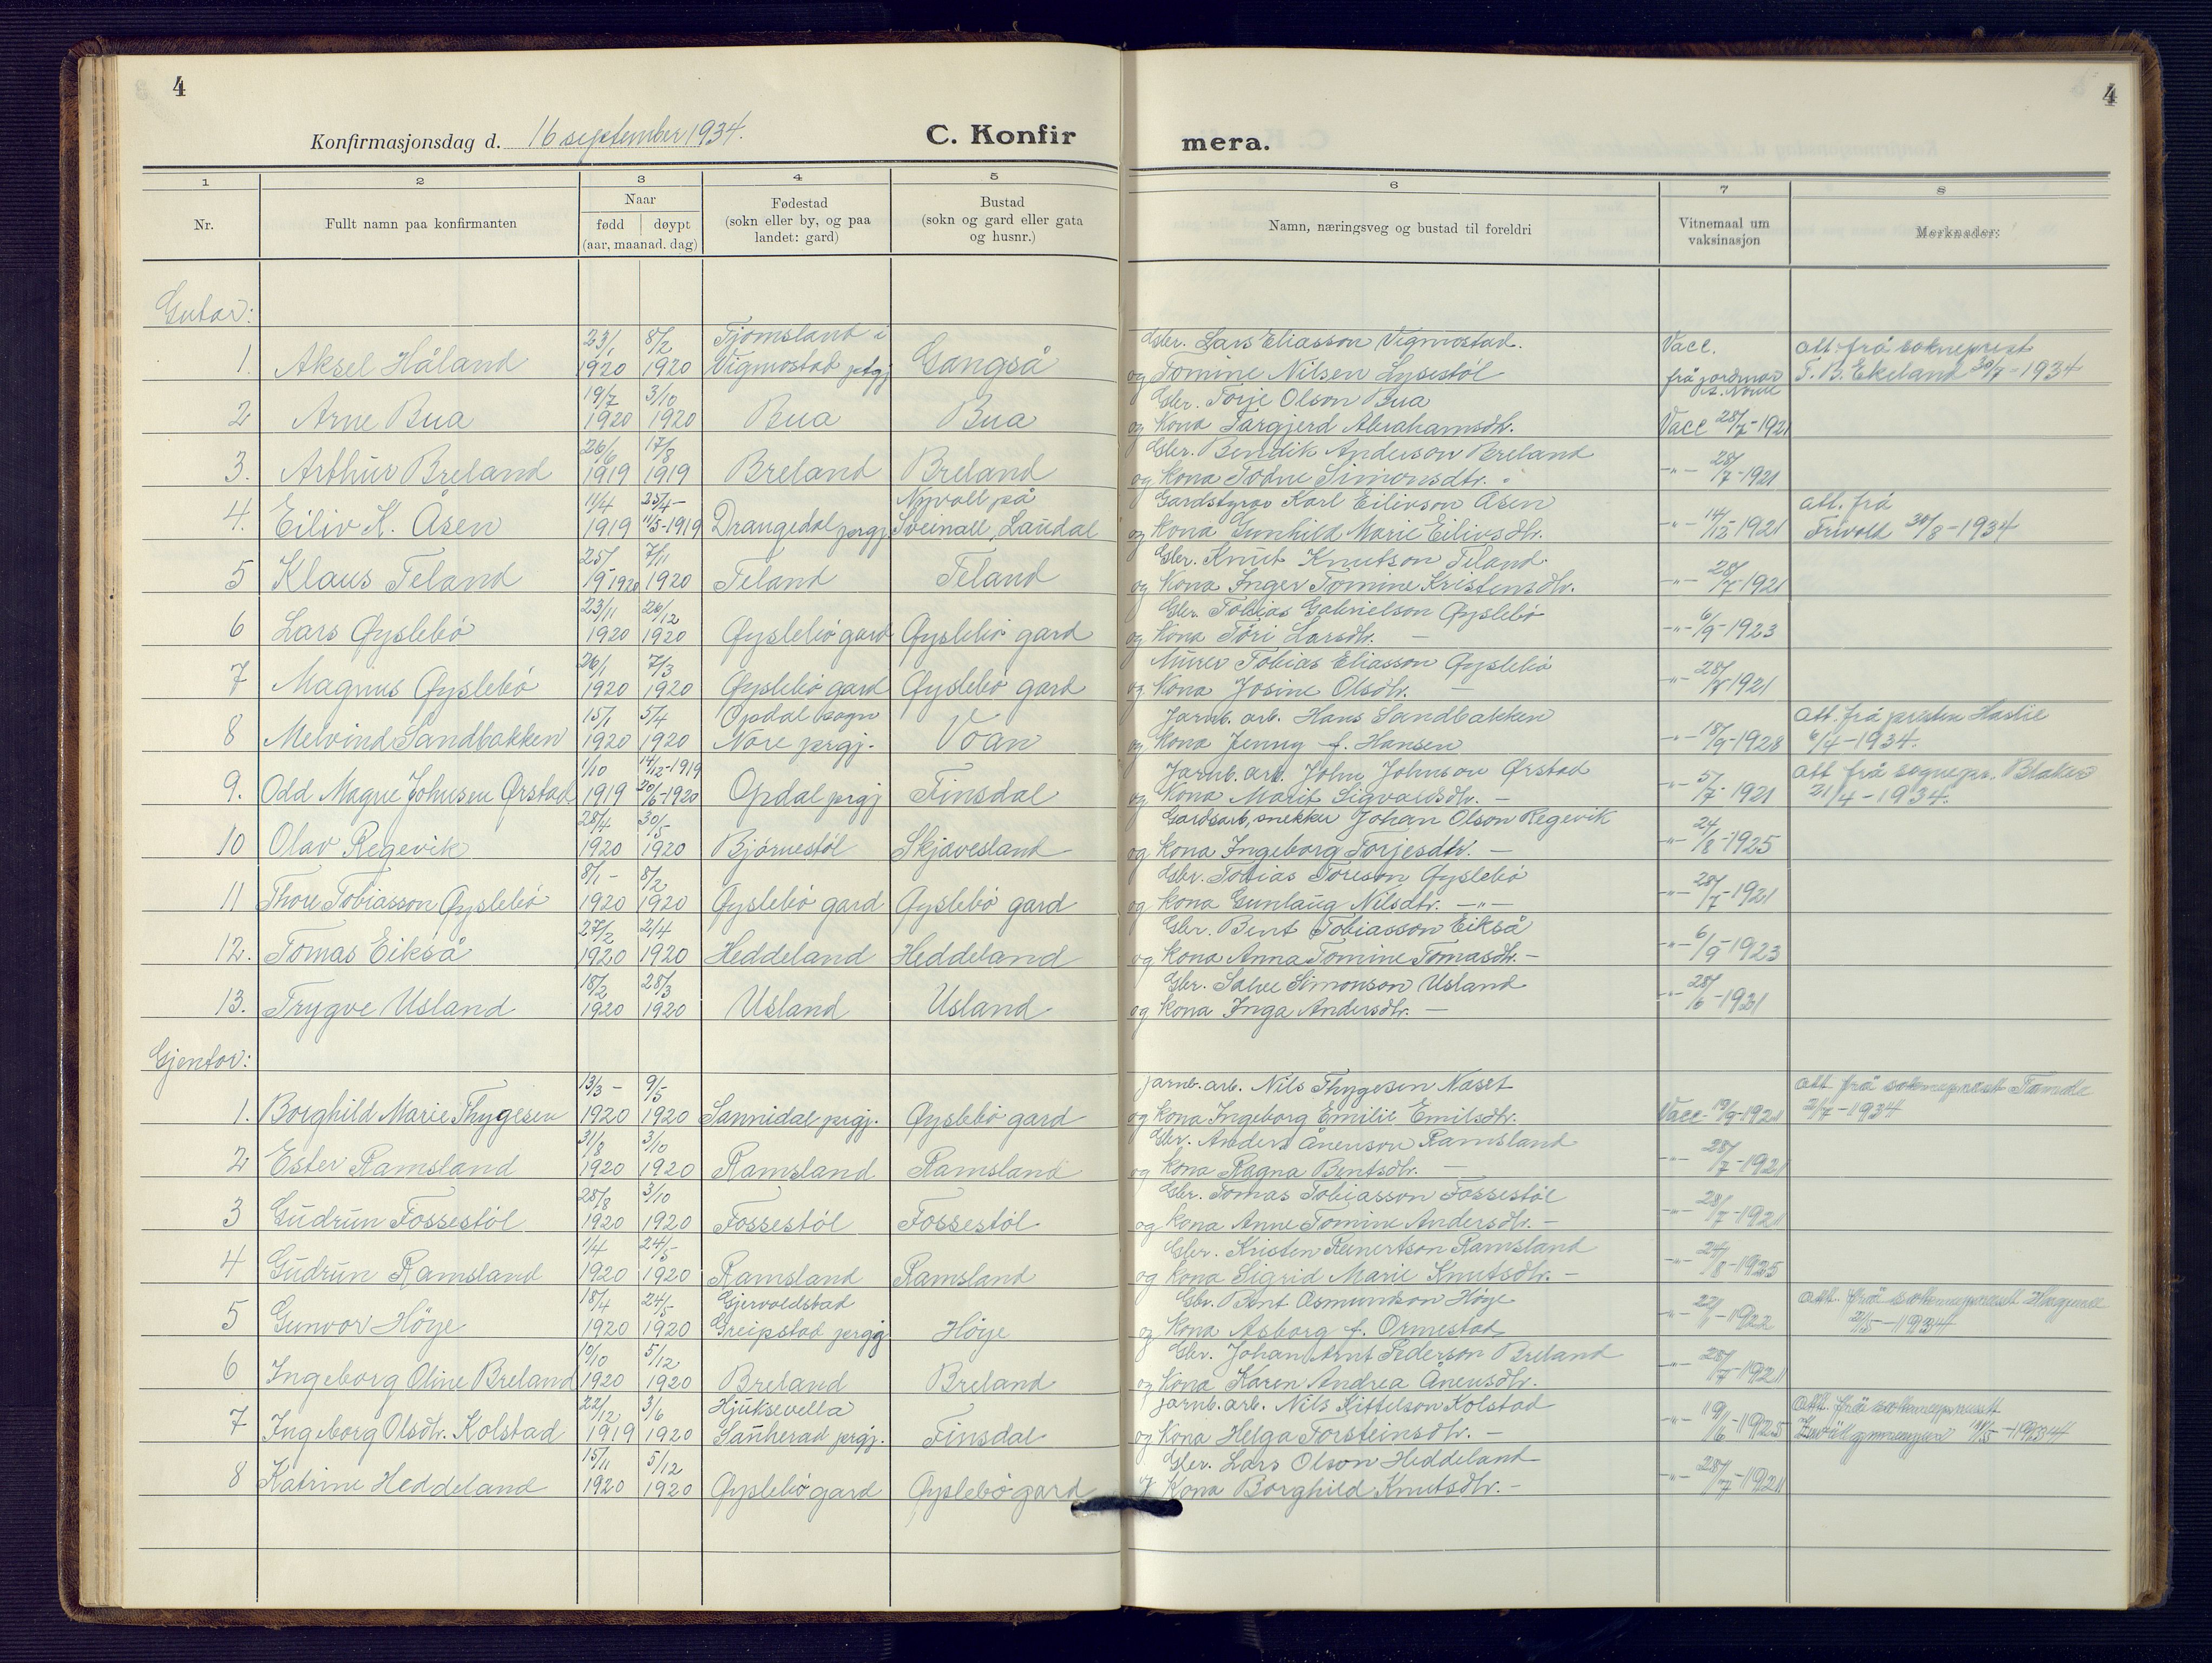 4
4
Konfirmasjonsdag d. 16 september 1934.
C. Konfir
mera.
1 2 3 4 5 6 7 8
Nr.
Fullt namn paa konfirmanten
Naar
fødd
døypt
(aar, maanad. dag)
Fødestad
(sokn eller by, og paa
landet: gard)
Bustad
(sokn og gard eller gata
og husnr.)
Namn, næringsveg og bustad til foreldri
Vitnemaal um
vaksinasjon
Merknader:
Gutar:
23/1 8/2 Fjomsland i Gbr. Lars Eliasson Vigmostad. Vacc. att. frå sokneprest
1. Aksel Håland 1920 1920 Vigmostad prgj Gangså og Tomine Nilsen Lysestöl frå jordmor T. B. Ekeland 20/7 - 1934
19/7 3/10 Gbr. Torje Olson Bua
2 Arne Bua 1920 1920 Bua Bua og Kona Targjerd Abrahamsdtr. Vacc 28/7-1921
26/6 17/8 Gbr. Bendik Anderson Breland
3. Arthur Breland 1919 1919 Breland Breland og kona Todne Simonsdtr. -"- 28/7-1921
11/4 25/4- Nyvoll på Gardstyrar Karl Eilivson Åsen att. frå
4. Eiliv K. Åsen 1919 11/5-1919 Drangedal prgj. Sveinall, Laudal og kona Gunhild Marie Eilivsdtr. -"- 14/12 1921 Frivold 30/8-1934
25/ 7/11 Gbr. Knut Knutson Teland
5 Klaus Teland 9-1920 1920 Teland Teland og Kona Inger Tomine Kristensdtr. -"- 28/7-1921
23/11 26/12 Gbr. Tobias Gabrielson Øyslebö
6 Lars Øyslebö 1920 1920 Øyslebö gard Øyslebö gard og Kona Töri Larsdtr. - -"- 6/9-1923
26/1 7/3 Murer Tobias Eliasson Øyslebö
7 Magnus Øyslebö 1920 1920 Øyslebö gard Øyslebö gard og Kona Josine Olsdtr. - -"- 28/7 1921
15/1 5/4 Opdal sogn Jarnb. arb. Hans Sandbakken att. frå presten Haslie
8 Melvind Sandbakken 1920 1920 Nore prgj. Voan og Kona Jenny f. Hansen -"- 18/9-1928 6/4-1934.
1/10 14/12-1919 Jarnb. arb. John Johnson Ørstad att frå sognepr. Blakes
9. Odd Magne Johnsen Ørstad 1919 20/6-1920 Opdal prgj Finsdal og Kona Marit Sigvardsdtr. - -"- 5/7-1921 21/4-1934.
28/4 30/5 Gardsarb, snekker Johan Olson Regevik
10 Olav Regevik 1920 1920 Björnestöl Skjævesland og kona Ingeborg Torjesdtr. - -"- 24/8-1925
8/1- 8/2 Gbr. Tobias Toreson Øyslebö
11 Thore Tobiasson Øyslebö 1920 1920 Øyslebö gard Øyslebö gard og kona Gunlaug Nilsdtr. -"- -"- 28/7-1921
27/2 2/4 Gbr. Bent Tobiasson Eikså
12. Tomas Eikså 1920 1920 Heddeland Heddeland og kona Anna Tomine Tomasdtr. - -"- 6/9-1923
18/2 28/3 Gbr. Salve Simonson Usland
13. Trygve Usland 1920 1920 Usland Usland og kona Inga Andersdtr. - -"- 28/6-1921
Gjentor:
13/3- 9/5 jarnb. arb. Nils Thygesen Næset att frå sokneprest
1. Borghild Marie Thygesen 1920 1920 Sannidal prgj. Øyslebö gard og kona Ingeborg Emilie Emilsdtr. Vacc 19/9-1921 2/7-1934
31/8 3/10 Gbr. Anders Ånenson Ramsland
2 Ester Ramsland 1920 1920 Ramsland Ramsland og kona Ragna Bentsdtr. - -"- 28/7-1921
28/8 3/10 Gbr. Tomas Tobiasson Fossestöl
3 Gudrun Fossestöl 1920 1920 Fossestöl Fossestöl og kona Anne Tomine Andersdtr. - -"- 28/7-1921
1/4 24/5 Gbr. Kristen Reinertson Ramsland
4 Gudrun Ramsland 1920 1920 Ramsland Ramsland og kona Sigrid Marie Knutsdtr. - -"- 24/8-1925
18/4 24/5 Gjervoldstad Gbr. Bent Osmundson Höye att. frå sokneprest
5 Gunvor Höye 1920 1920 Greipstad prgj Höye og Kona Asborg f. Ormestad -"- -1922 -1934
10/10 5/12 Gbr. Johan Arnt Pederson Breland
6 Ingeborg Oline Breland 1920 1920 Breland Breland og Kona Karen Andrea Ånensdtr. -"- 28/7-1921
22/12 3/6 Hjuksevella jarnb. arb. Nils Kittelson Kolstad att. frå sokneprest
7 Ingeborg Olsdtr. Kolstad 1919 1920 Sauherad prgj. Finsdal og Kona Helga Torsteinsdtr. - -"- -1925 -1934
15/11 5/12 Gbr. Lars Olson Heddeland
8 Katrine Heddeland 1920 1920 Øyslebö gard Øyslebö gard og Kona Borghild Knutsdtr. - -"- 28/7-1921